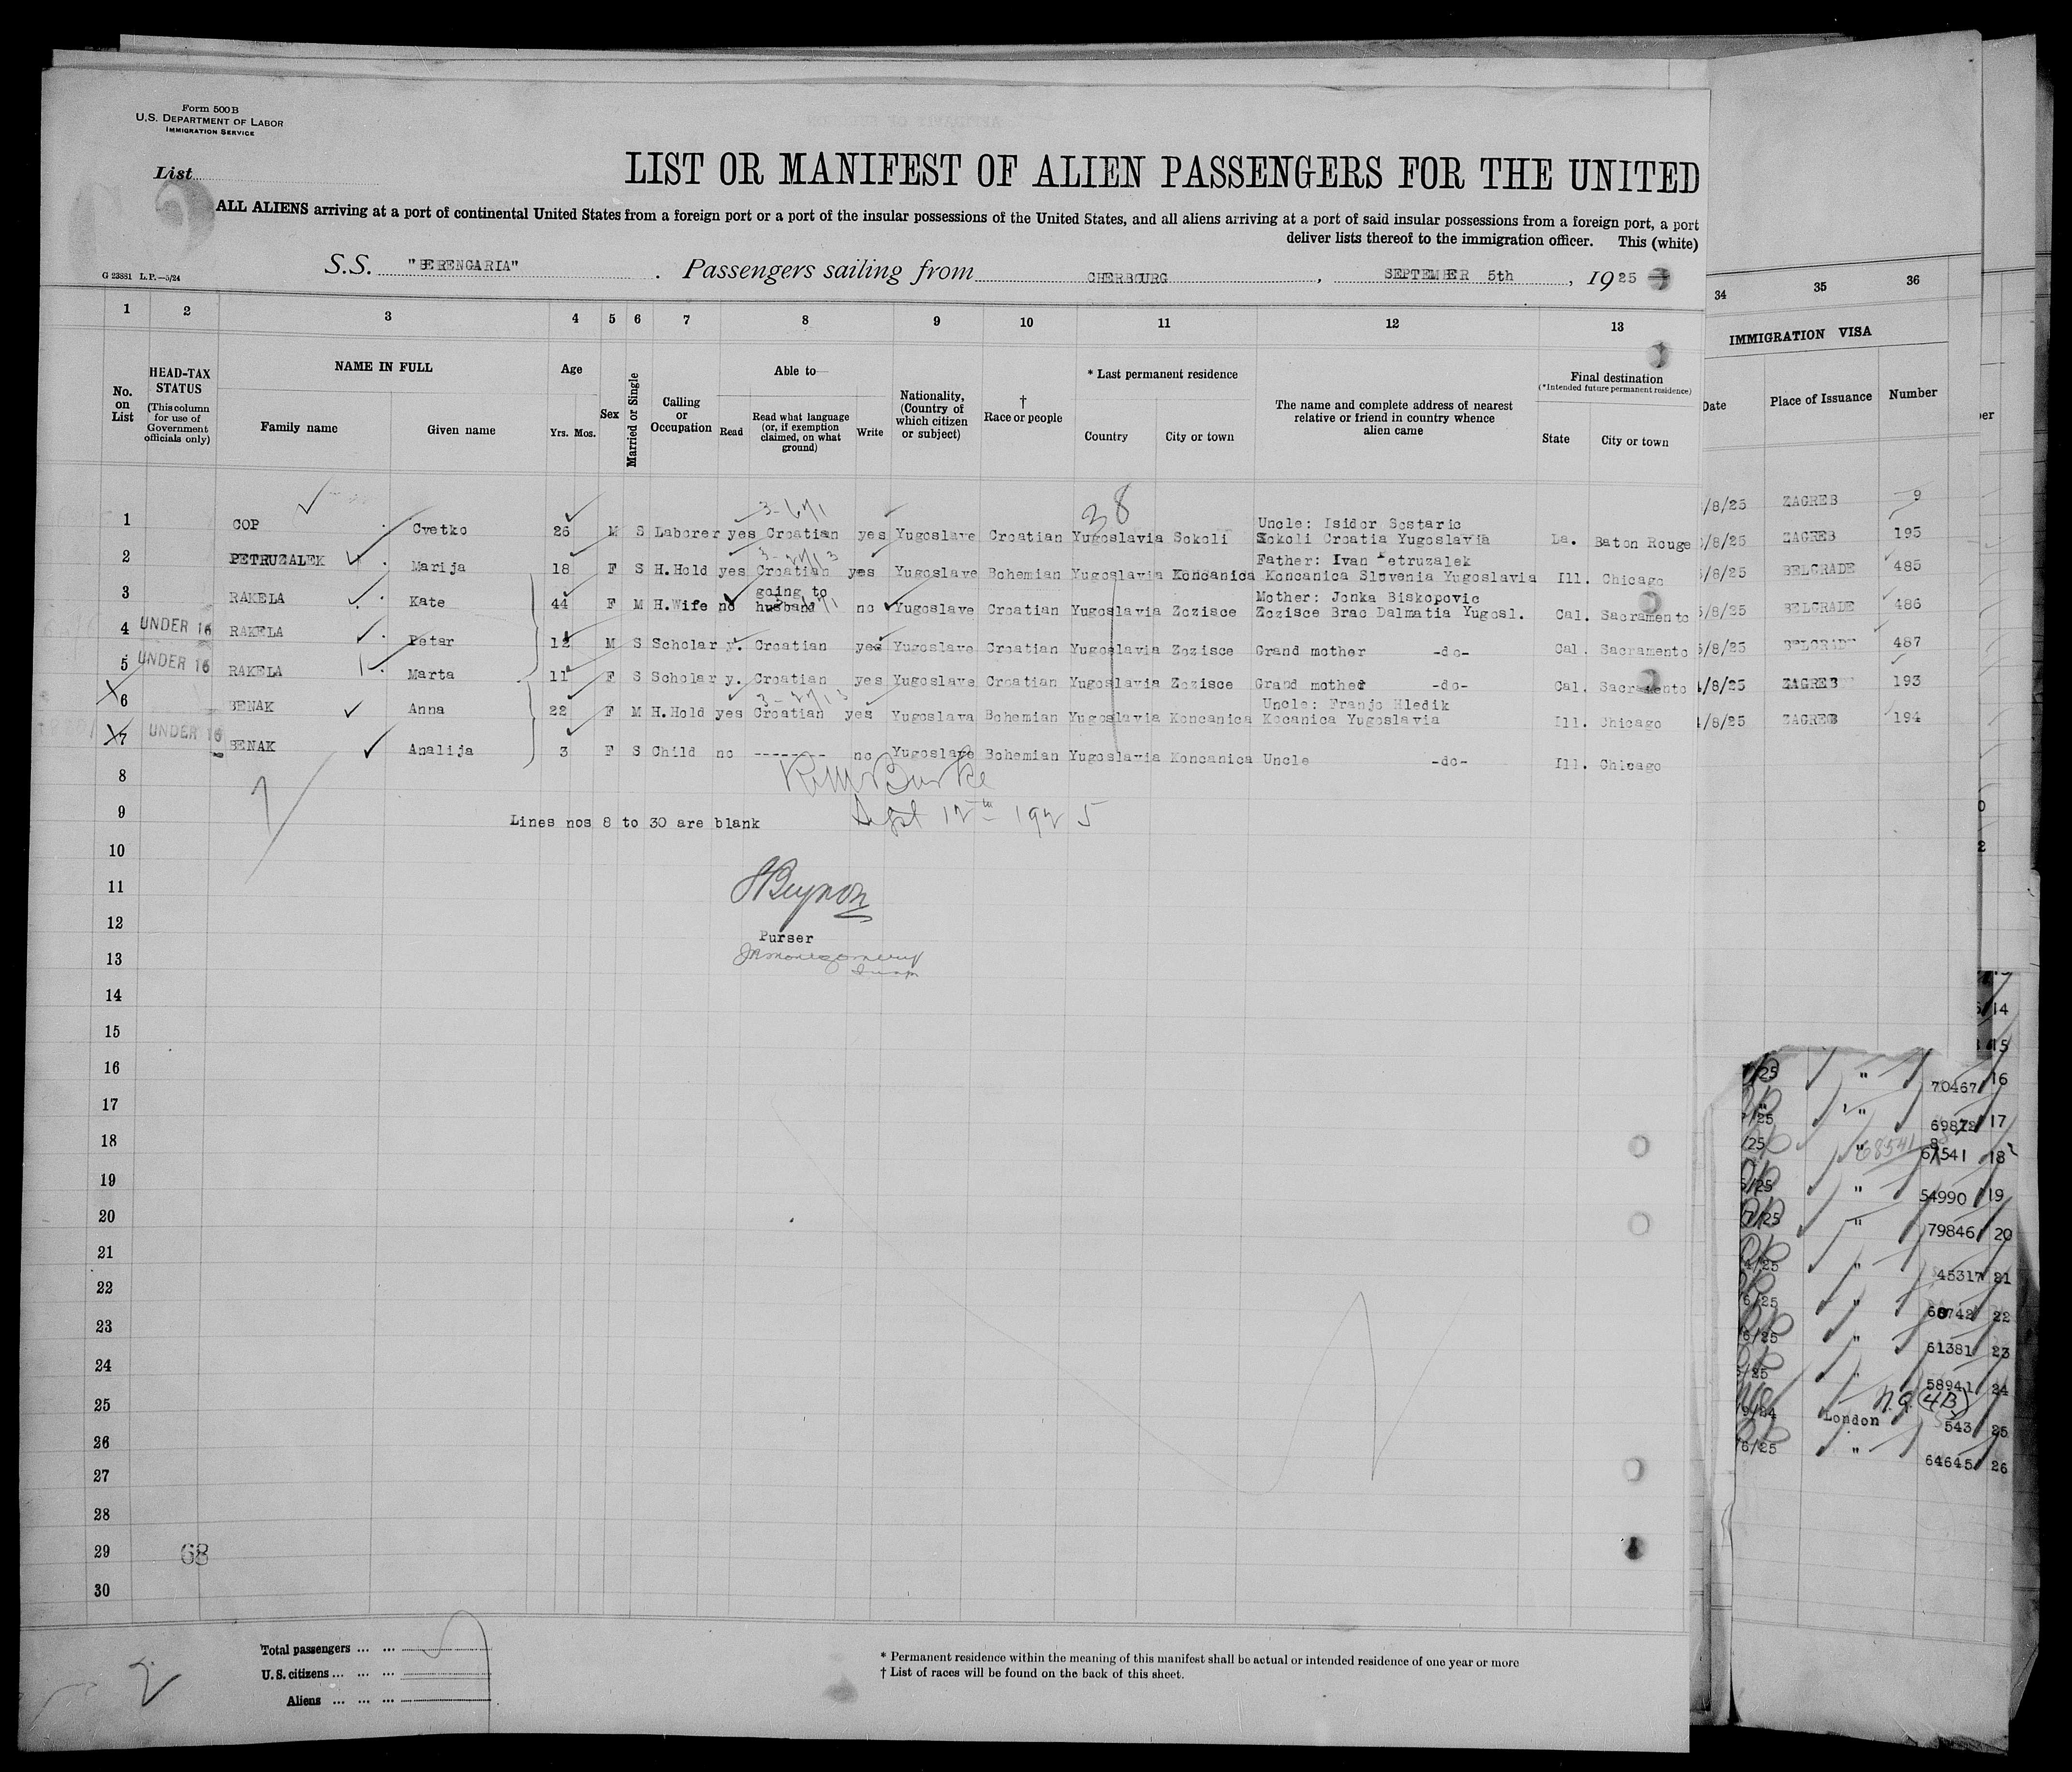 Form 500B
U.S. DEPARTMENT OF LABOR
IMMIGRATION SERVICE
List
LIST OR MANIFEST OF ALIEN PASSENGERS FOR THE UNITED
ALL ALIENS arriving at a port of continental United States from a foreign port or a port of the insular possessions of the United States, and all aliens arriving at a port of said insular possessions from a foreign port, a port
deliver lists thereof to the immigration officer. This (white)
G 23881 L.P.—5/24
S.S. "BERENGARIA" . Passengers sailing from CHERBOURG, SEPTEMBER 5th, 1925
1 2 3 4 5 6 7 8 9 10 11 12 13 34 35 36
No. on List
HEAD-TAX STATUS
(This column for use of Government officials only)
NAME IN FULL
Family name Given name
Age
Yrs. Mos.
Sex
Married or Single
Calling or Occupation
Able to
Read
Read what language (or, if exemption claimed, on what ground)
Write
Nationality, (Country of which citizen or subject)
† Race or people
* Last permanent residence
Country City or town
The name and complete address of nearest relative or friend in country whence alien came
Final destination
(*Intended future permanent residence)
State City or town
IMMIGRATION VISA
Date Place of Issuance Number
38
3-6/1
1 COP Cvetko 26 M S Laborer yes Croatian yes Yugoslave Croatian Yugoslavia Sokoli Uncle: Isidor Sostaric
Sokoli Croatia Yugoslavia La. Baton Rouge
2 PETRUZALEK Marija 18 F S H.Hold yes Croatian yes Yugoslave Bohemian Yugoslavia Koncanica Father: Ivan Petruzalek
Koncanica Slovenia Yugoslavia Ill. Chicago
3 RAKELA Kate 44 F M H.Wife no going to husband no Yugoslave Croatian Yugoslavia Zozisce Mother: Jonka Biskopovic
Zozisce Brac Dalmatia Yugosl. Cal. Sacramento
4 UNDER 16 RAKELA Petar 12 M S Scholar y. Croatian yes Yugoslave Croatian Yugoslavia Zozisce Grand mother -do- Cal. Sacramento
5 UNDER 16 RAKELA Marta 11 F S Scholar y. Croatian yes Yugoslave Croatian Yugoslavia Zozisce Grand mother -do- Cal. Sacramento
6 BENAK Anna 22 F M H.Hold yes Croatian yes Yugoslava Bohemian Yugoslavia Koncanica Uncle: Franjo Hledik
Kocanica Yugoslavia Ill. Chicago
7 UNDER 16 BENAK Analija 3 F S Child no -------- no Yugoslave Bohemian Yugoslavia Koncanica Uncle -do- Ill. Chicago
/8/25 ZAGREB 9
/8/25 ZAGREB 195
/8/25 BELGRADE 485
/8/25 BELGRADE 486
/8/25 BELGRADE 487
/8/25 ZAGREB 193
/8/25 ZAGREB 194
8
Burke
9
Sept 12th 1925
Lines nos 8 to 30 are blank
10
11
Beynon
12
Purser
13
14
15
16
17
18
19
20
21
22
23
24
25
26
27
28
29 68
30
14
15
/25 " 70467 16
/25 " 69872 17
/25 " 68541 67541 18
/25 " 54990 19
7/25 " 79846 20
4/25 " 45317 21
6/25 " 60742 22
6/25 " 61381 23
/25 " 58941 24
n.q. (4B)
London 543 25
6/25 " 64645 26
Total passengers ... ...
U.S. citizens ... ... ...
Aliens ... ... ...
2
* Permanent residence within the meaning of this manifest shall be actual or intended residence of one year or more
† List of races will be found on the back of this sheet.